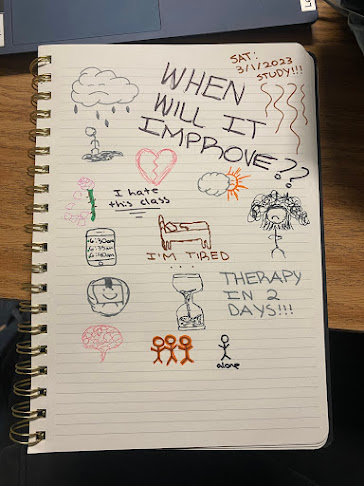 SAT:
3/1/2023
STUDY!!!
WHEN
WILL IT
IMPROVE??
I hate
this class
6:30am
6:35am
6:40am
I'M TIRED
...
THERAPY
IN 2
DAYS!!!
alone